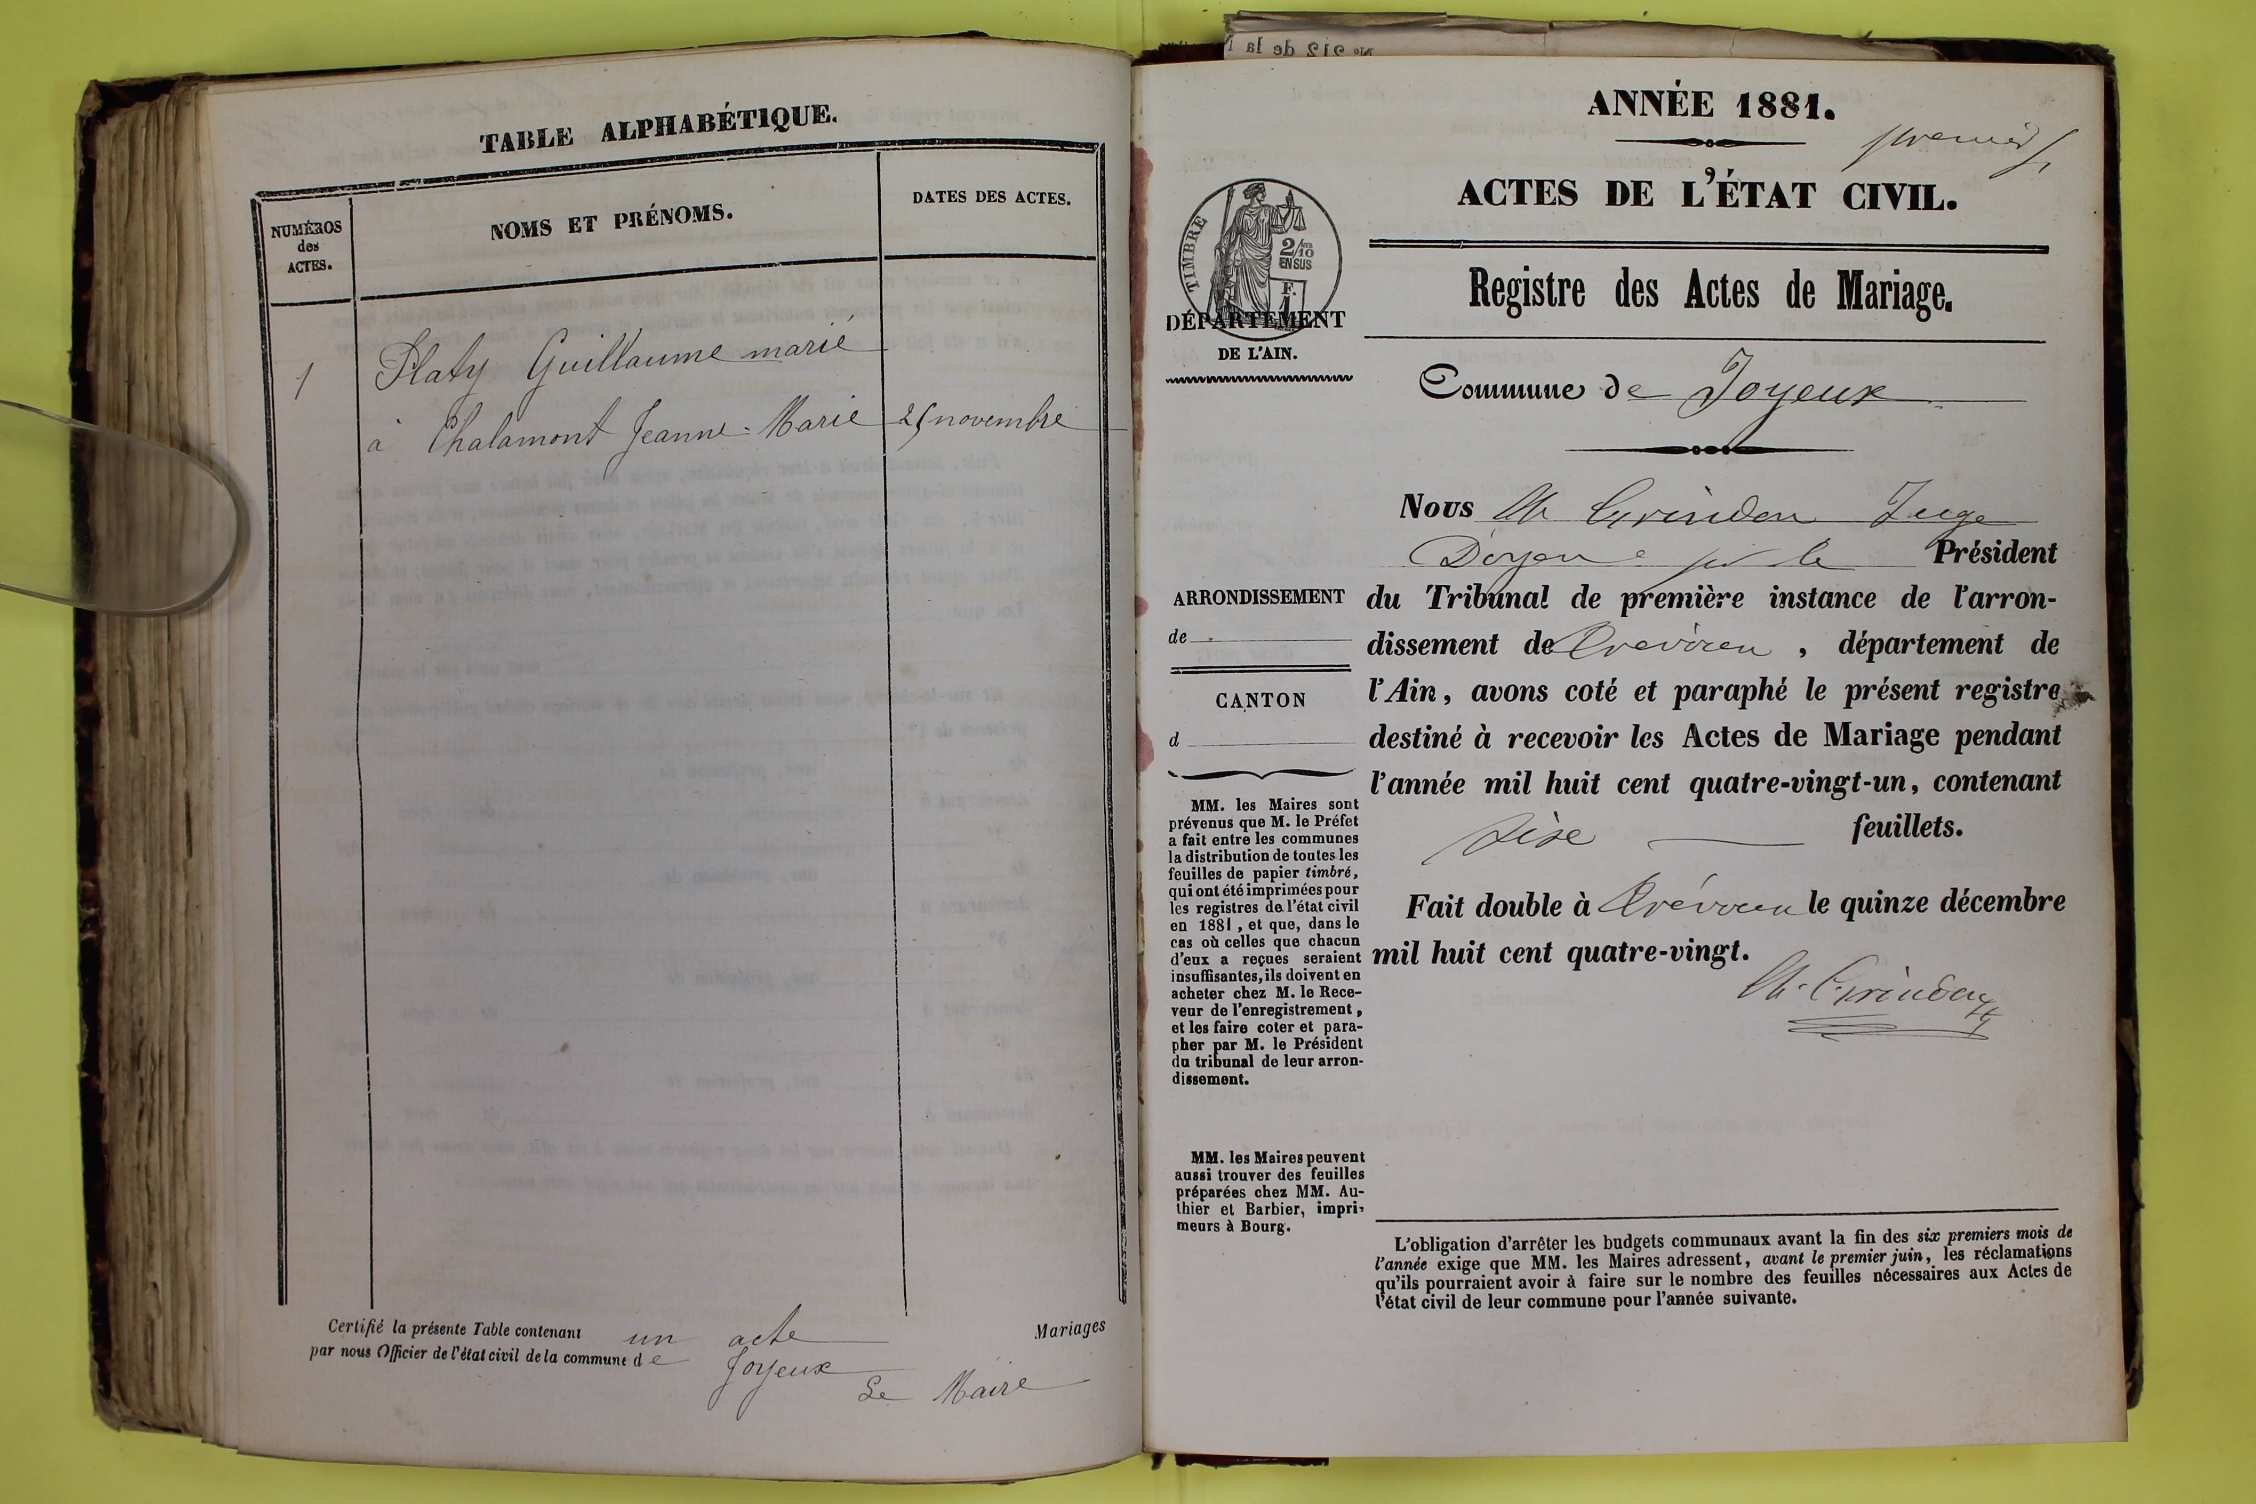 TABLE ALPHABÉTIQUE.
NUMÉROS
des
ACTES.
NOMS ET PRÉNOMS.
DATES DES ACTES.
1
Platy Guillaume marié
à Chalamont Jeanne-Marie
25 novembre
Certifié la présente Table contenant un acte Mariages
par nous Officier de l'état civil de la commune de Joyeux
Le Maire
Nº 212 de la
ANNÉE 1881.
premier
ACTES DE L'ÉTAT CIVIL.
TIMBRE
2/10
EN SUS
F.
1
DÉPARTEMENT
DE L'AIN.
Registre des Actes de Mariage.
Commune de Joyeux
Nous Ch Grindon Juge
Doyen pr le Président
du Tribunal de première instance de l'arron-
dissement de Trévoux, département de
l'Ain, avons coté et paraphé le présent registre
destiné à recevoir les Actes de Mariage pendant
l'année mil huit cent quatre-vingt-un, contenant
feuillets.
Fait double à Trévoux le quinze décembre
mil huit cent quatre-vingt.
Ch. Grindon
ARRONDISSEMENT
de
CANTON
d
MM. les Maires sont
prévenus que M. le Préfet
a fait entre les communes
la distribution de toutes les
feuilles de papier timbré,
qui ont été imprimées pour
les registres de l'état civil
en 1881, et que, dans le
cas où celles que chacun
d'eux a reçues seraient
insuffisantes, ils doivent en
acheter chez M. le Rece-
veur de l'enregistrement,
et les faire coter et para-
pher par M. le Président
du tribunal de leur arron-
dissement.
MM. les Maires peuvent
aussi trouver des feuilles
préparées chez MM. Au-
thier et Barbier, impri-
meurs à Bourg.
L'obligation d'arrêter les budgets communaux avant la fin des six premiers mois de
l'année exige que MM. les Maires adressent, avant le premier juin, les réclamations
qu'ils pourraient avoir à faire sur le nombre des feuilles nécessaires aux Actes de
l'état civil de leur commune pour l'année suivante.